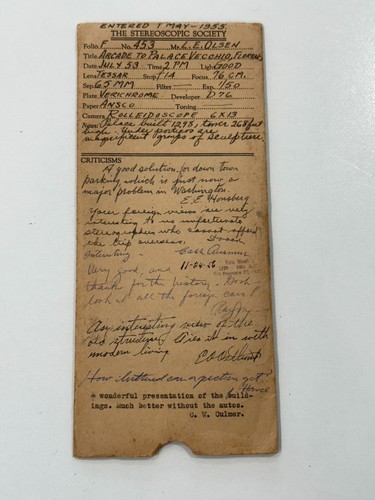 ENTERED 1 MAY-1955
THE STEREOSCOPIC SOCIETY
Folio F No. 453 Mr. L.E. OLSEN
Title ARCADE TO PALACE VECCHIO, FLORENCE
Date JULY 53 Time 2 PM Light GOOD
Lens TESSAR Stop F14 Focus 76 CM.
Sep. 65 MM Filter — Exp. 1/50
Plate VERICHROME Developer D76
Paper ANSCO Toning
Camera ROLLEIDOSCOPE 6X13
Notes: Palace built 1298, tower 268 feet
high. Under porticos are
magnificent groups of sculpture.
CRITICISMS
A good solution for down town
parking which is just now a
major problem in Washington.
E. E. Honsberg
Your foreign views are very
interesting to us unfortunate
stereographers who cannot afford
the trip overseas.
Interesting.
Very good, and 11-24-56
thanks for the history. Gosh
look at all the foreign cars!
An interesting view of the
old structure. Ties it in with
modern living
How cluttered can a picture get?
A wonderful presentation of the build-
ings. Much better without the autos.
C. W. Culmer.